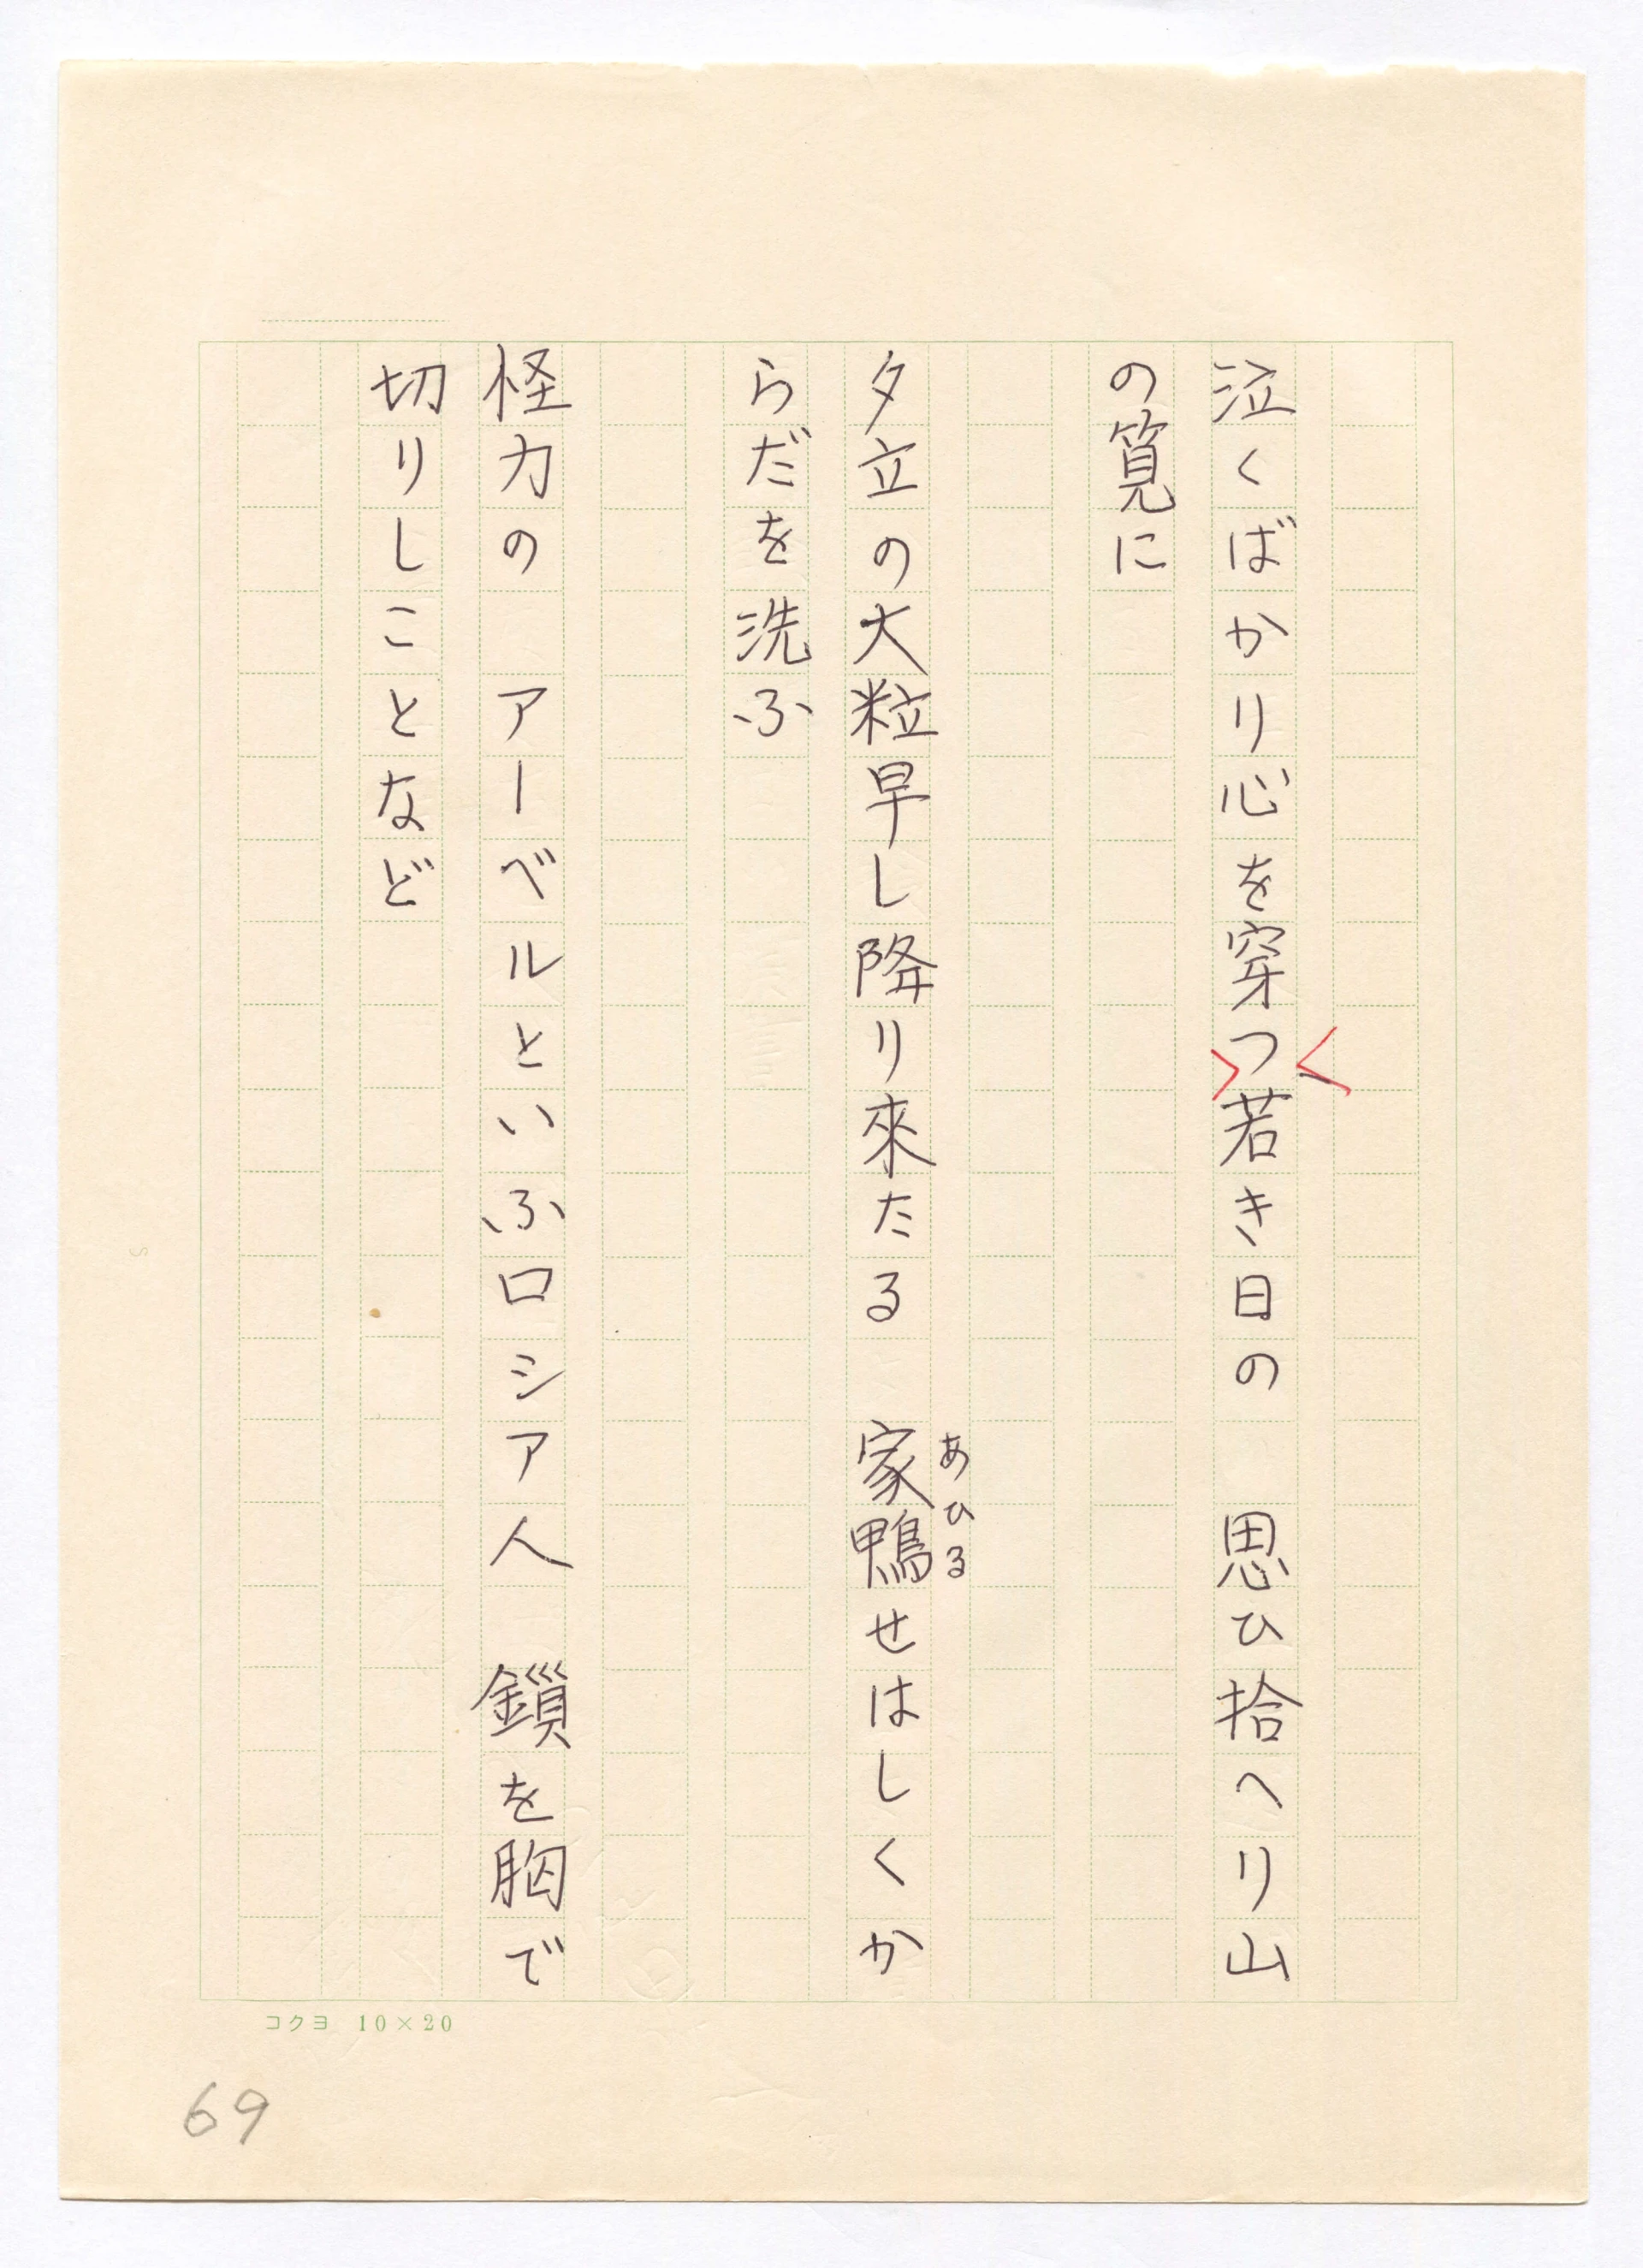 泣くばかり心を穿つ若き日の　思ひ拾へり山
く
の筧に
夕立の大粒早し降り來たる　家鴨せはしくか
あひる
らだを洗ふ
怪力の　アーベルといふロシア人　鎖を胸で
切りしことなど
コクヨ 10×20
69